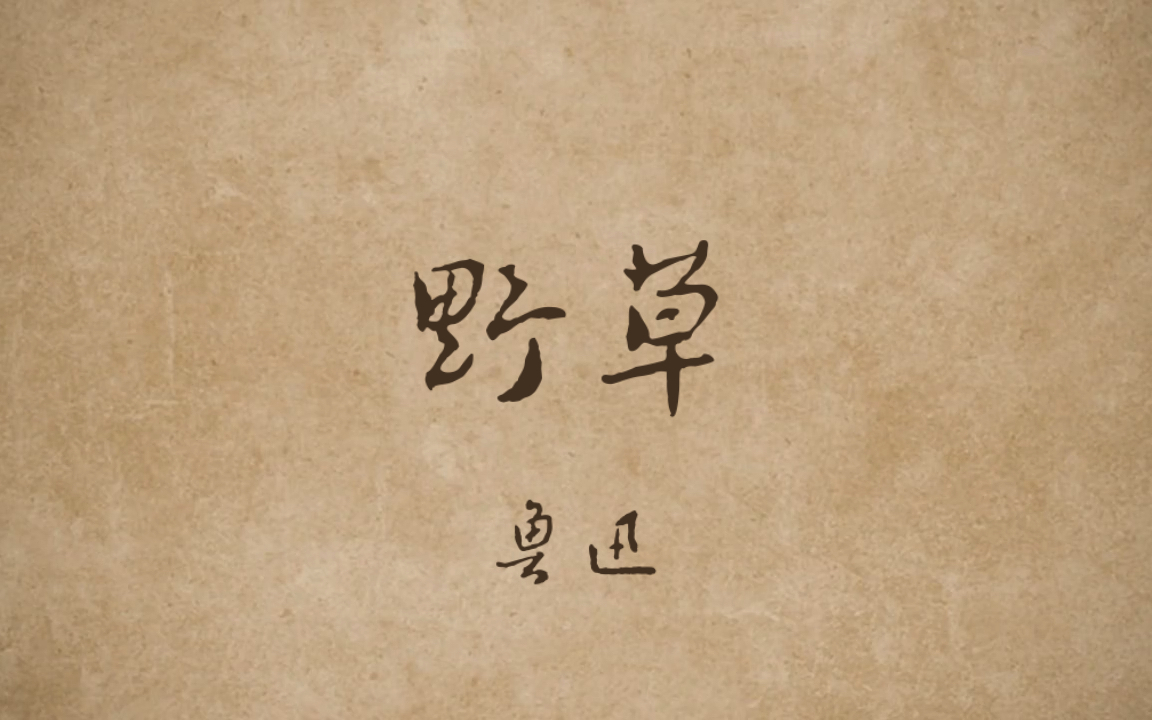 野草
鲁迅